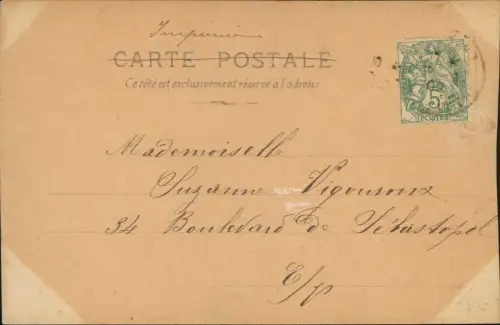 Imprimé
CARTE POSTALE
Ce côté est exclusivement réservé à l'adresse
5c
POSTES
Mademoiselle
Suzanne Vigouroux
34 Boulevard de Sébastopol
E/V